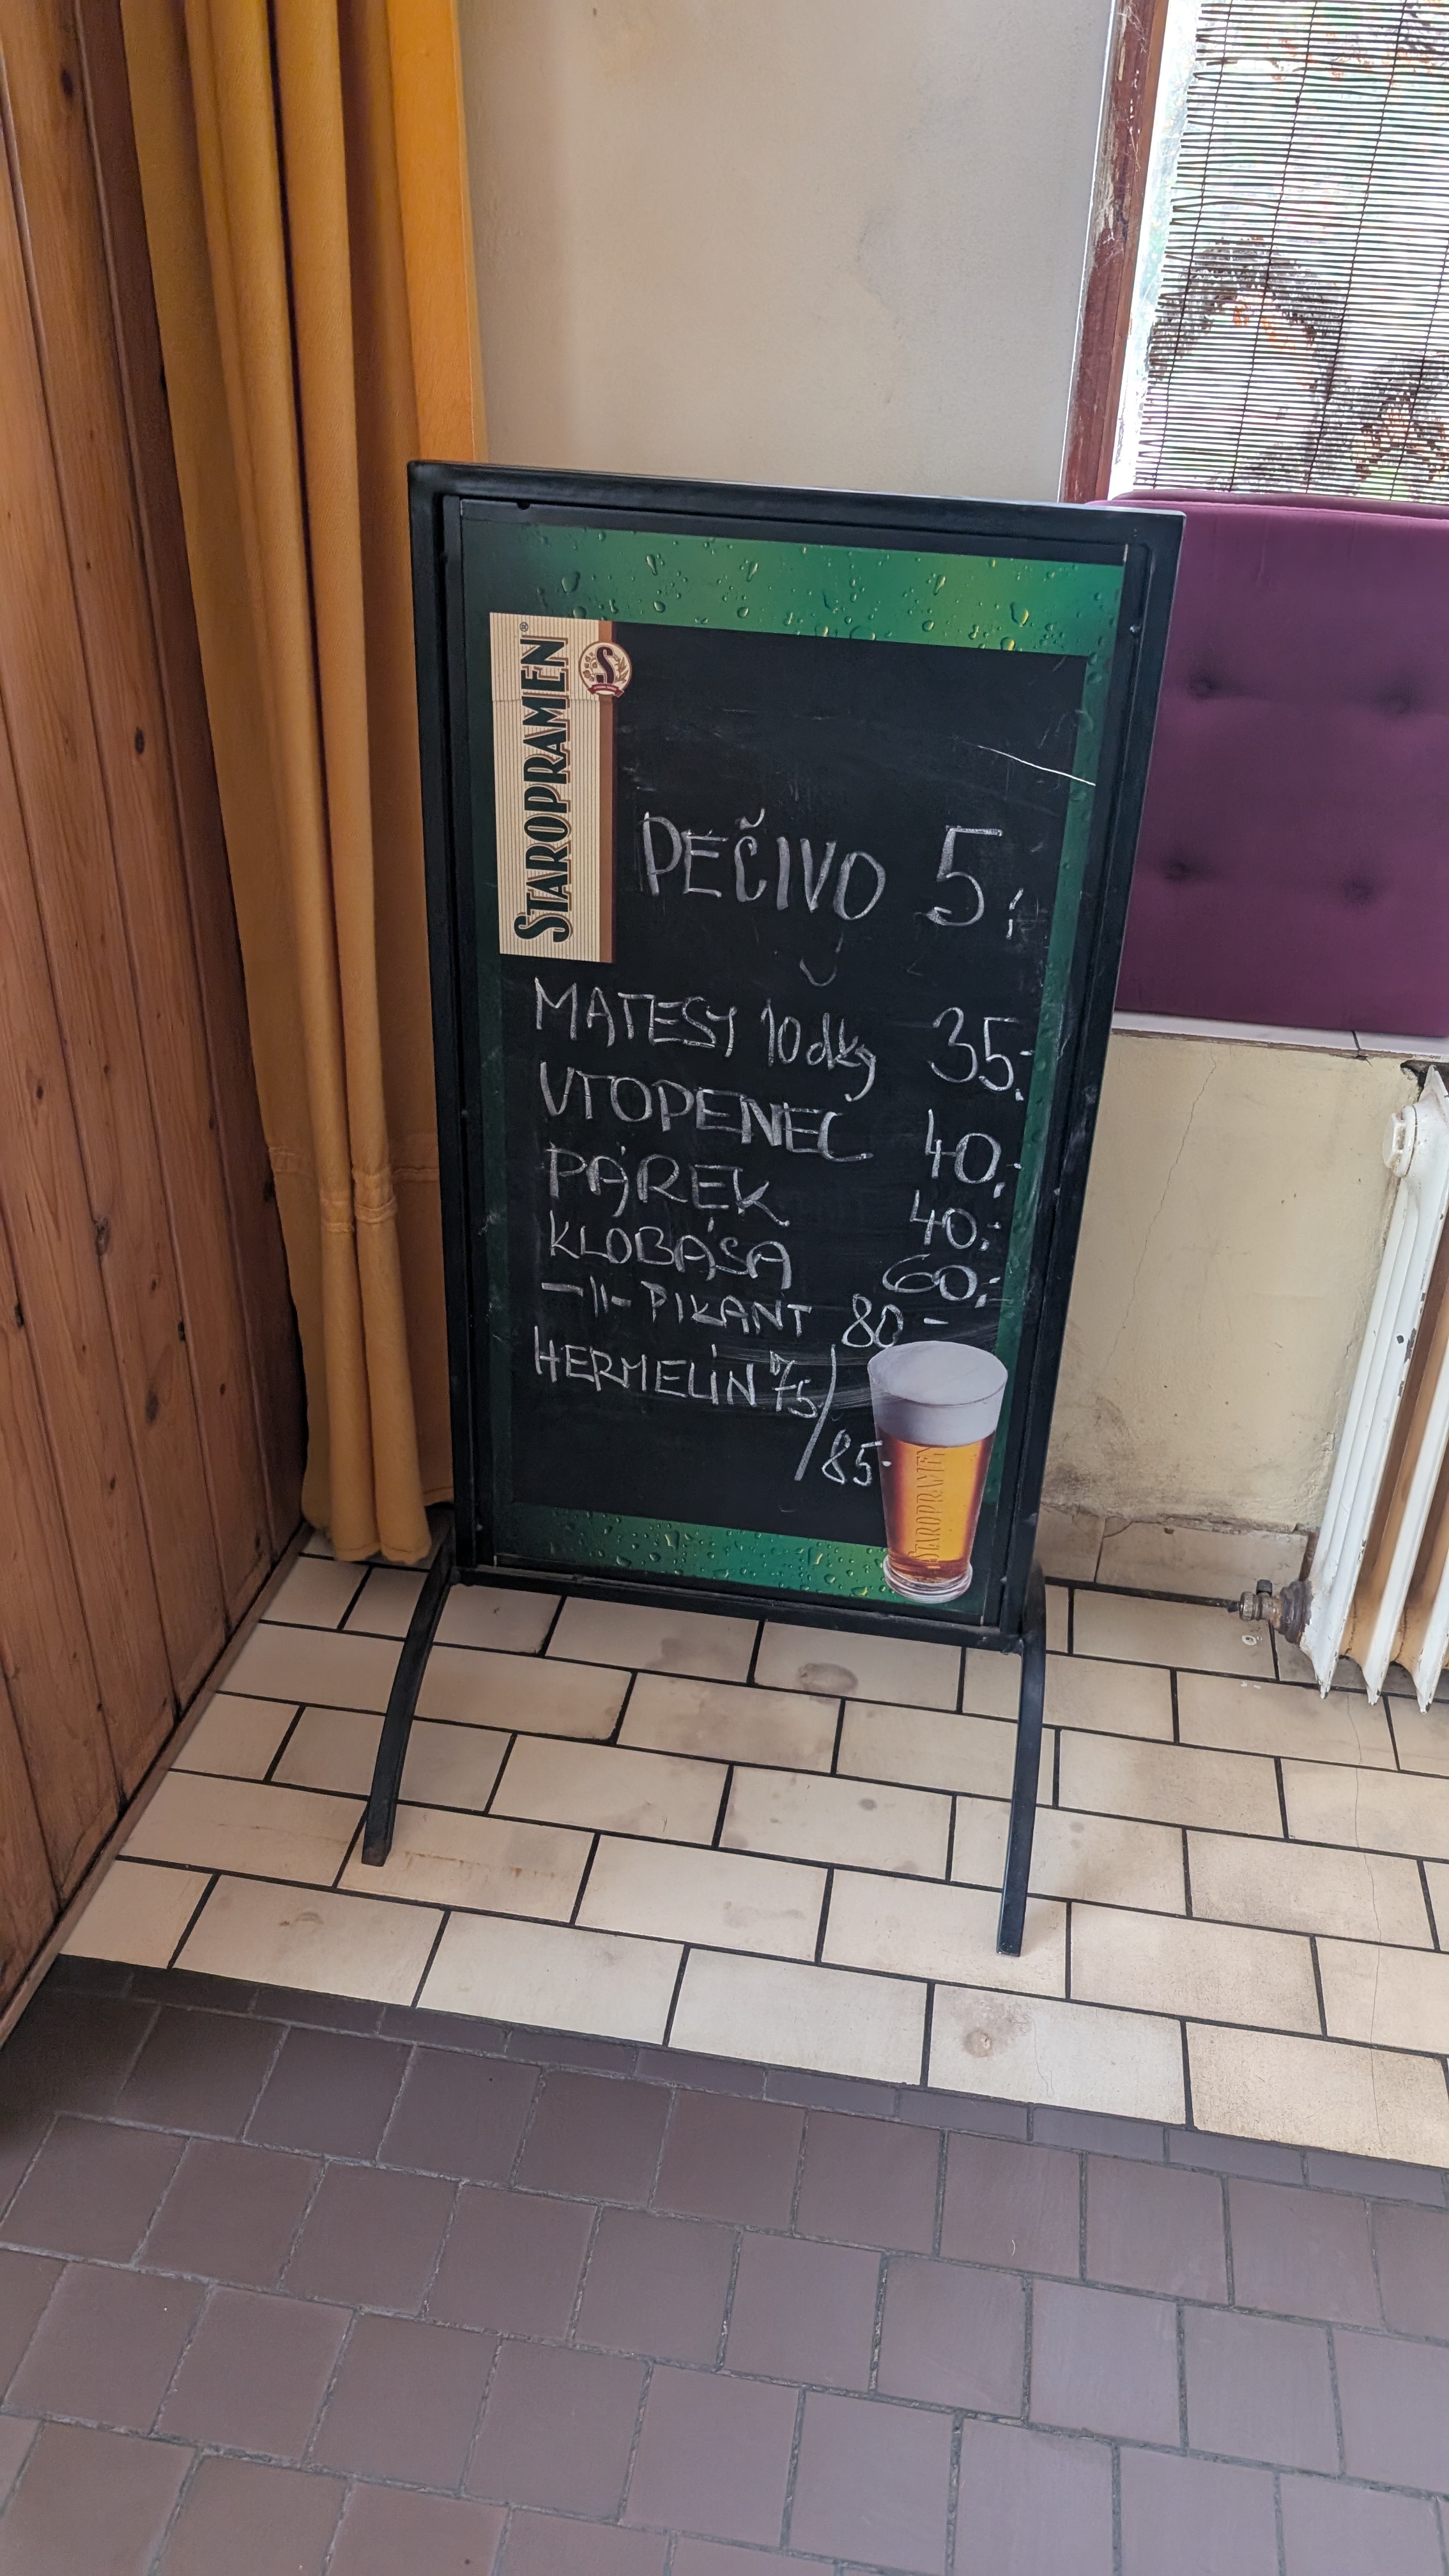 STAROPRAMEN®
S
PEČIVO 5,-
MATESY 10dkg 35,-
UTOPENEC 40,-
PÁREK 40,-
KLOBÁSA 60,-
-||- PIKANT 80-
HERMELÍN 75/
85-
STAROPRAMEN